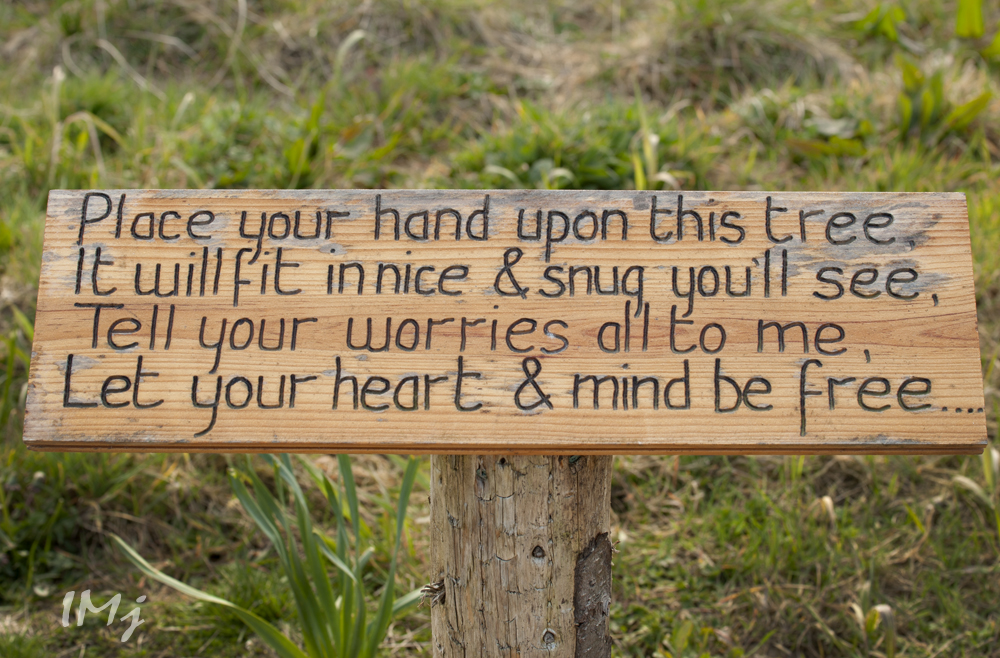 Place your hand upon this tree,
It will fit in nice & snug you'll see,
Tell your worries all to me,
Let your heart & mind be free....
IMj